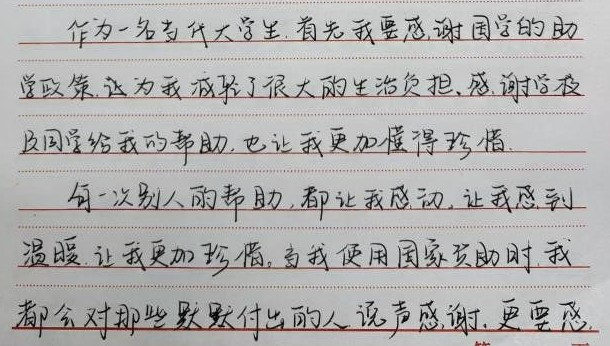 作为一名当代大学生,首先我要感谢国学的助
学政策,这为我减轻了很大的生活负担、感谢学校
及同学给我的帮助,也让我更加懂得珍惜.
每一次别人的帮助,都让我感动,让我感到
温暖,让我更加珍惜。当我使用国家资助时,我
都会对那些默默付出的人说声感谢.更要感